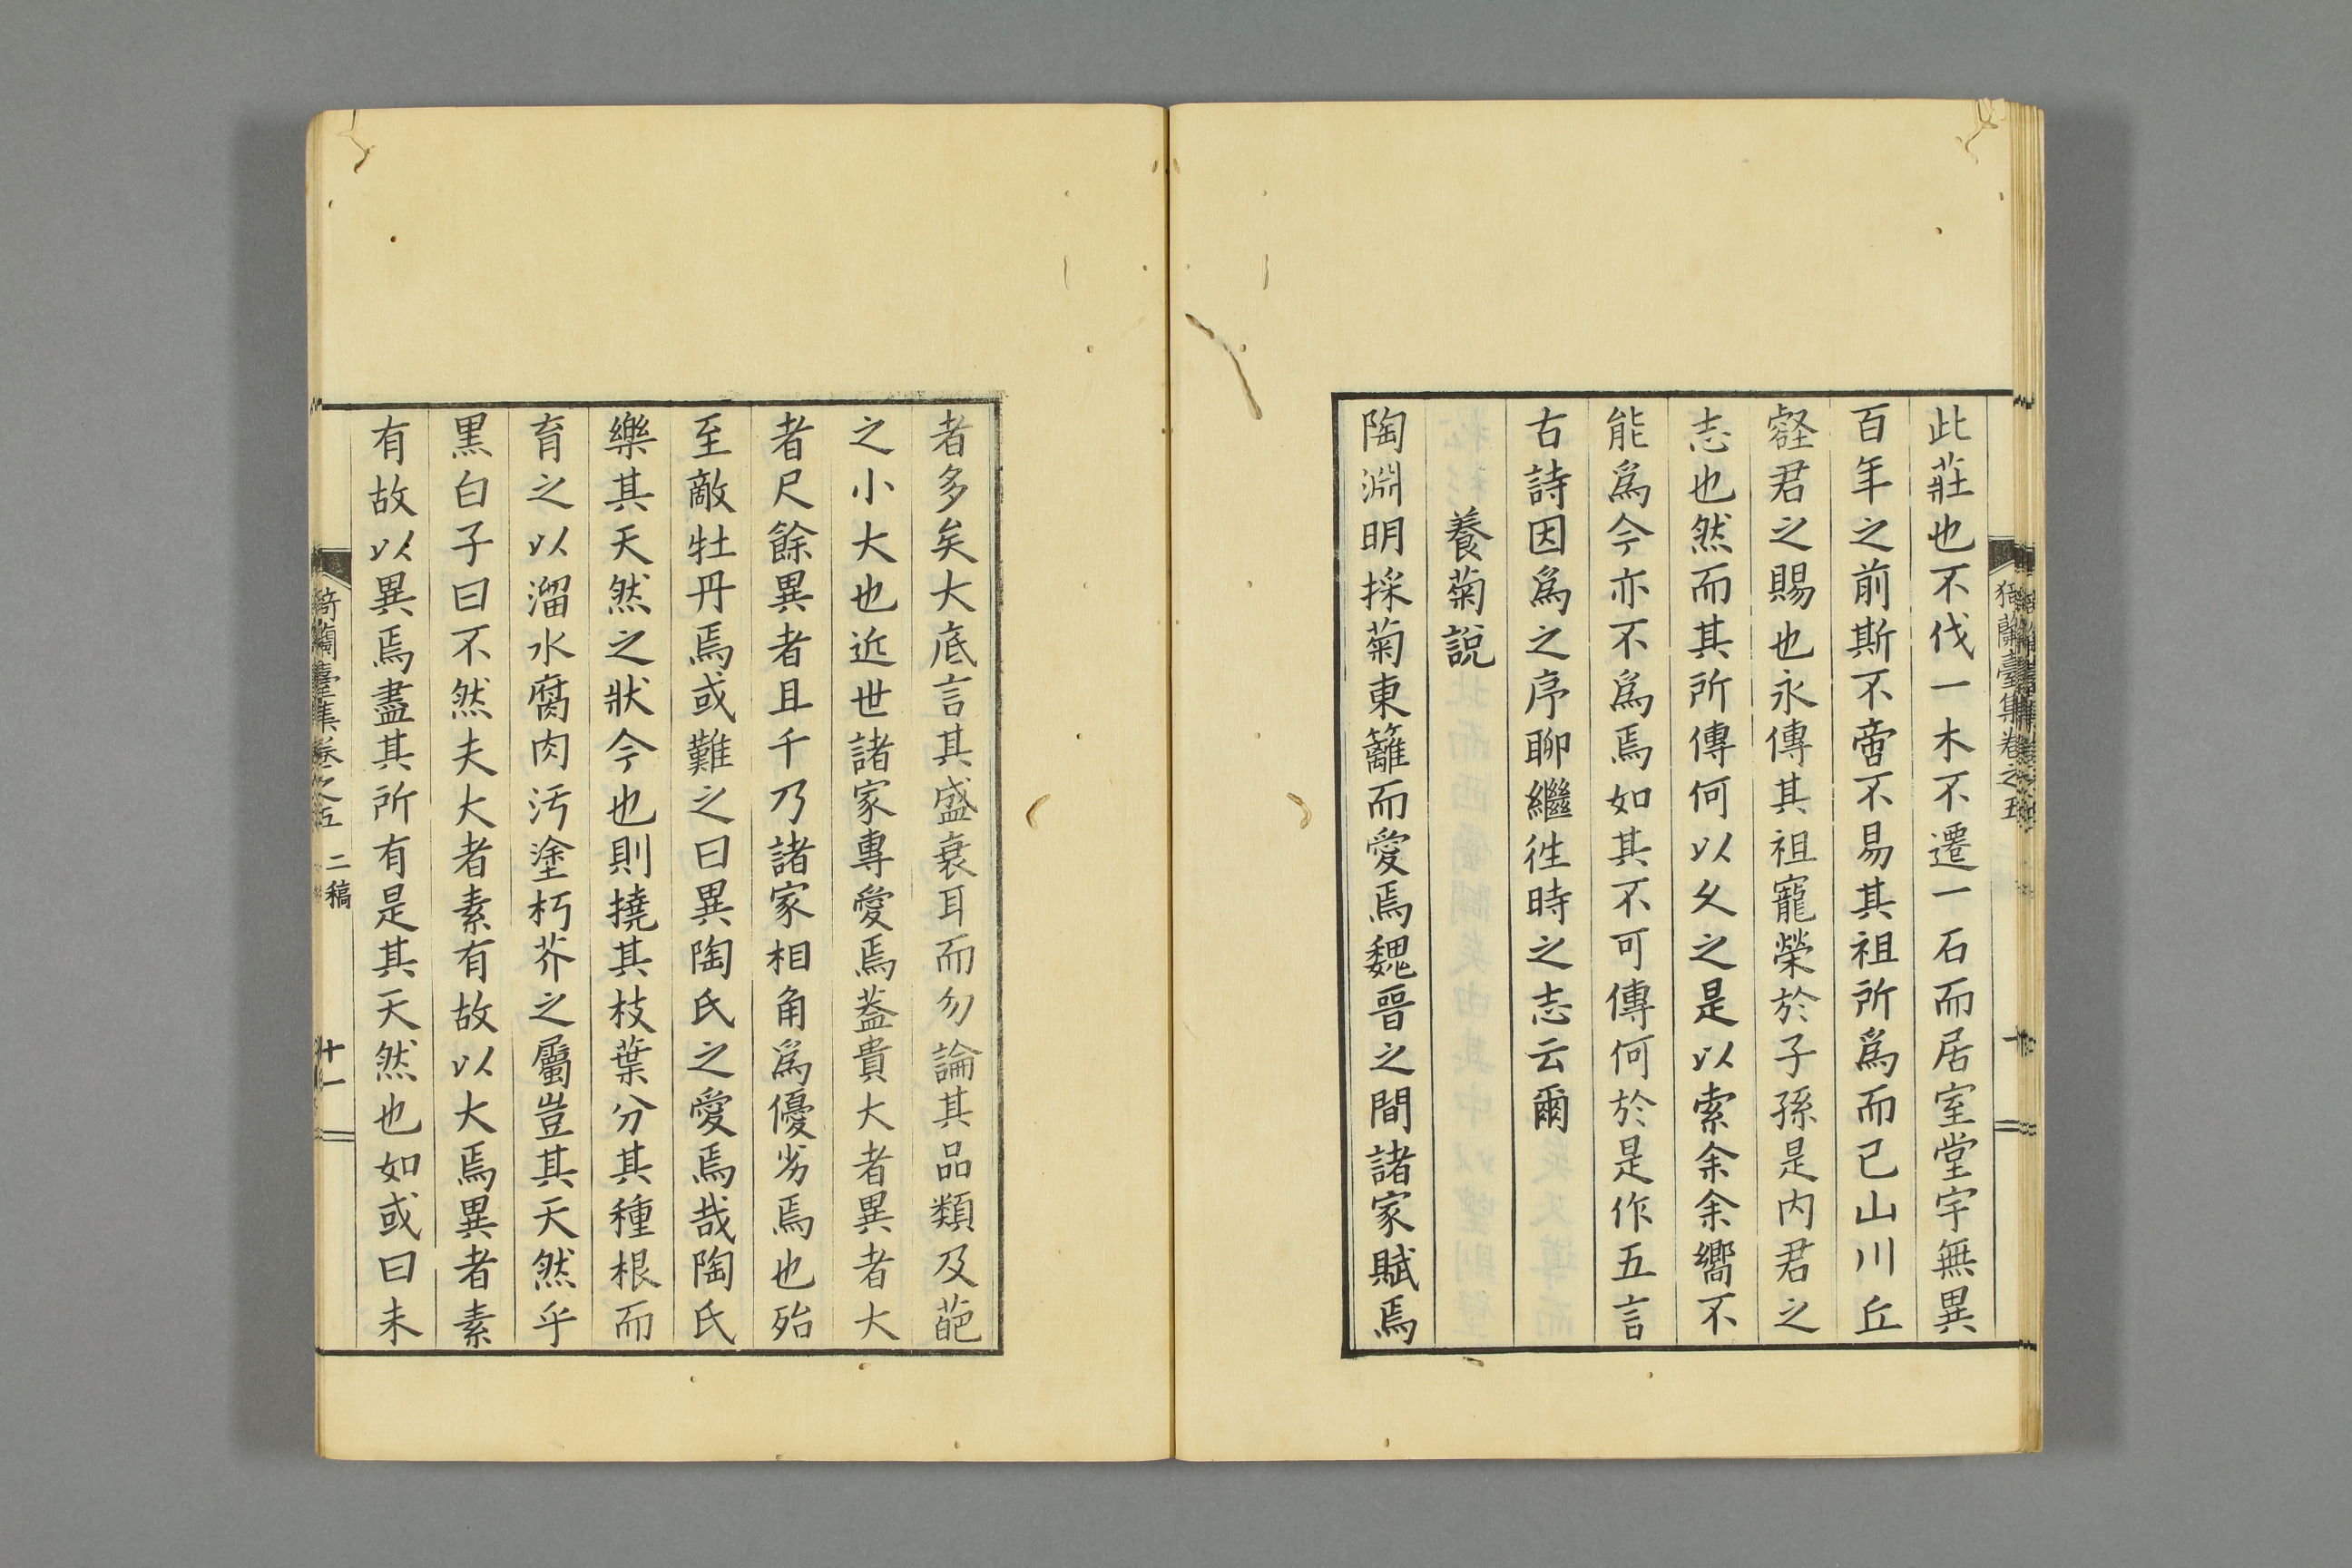 此莊也不伐一木不遷一石而居室堂宇無異
百年之前斯不啻不易其祖所爲而已山川丘
壑君之賜也永傳其祖寵榮於子孫是内君之
志也然而其所傳何以久之是以索余余嚮不
能爲今亦不爲焉如其不可傳何於是作五言
古詩因爲之序聊繼徃時之志云爾
養菊說
陶淵明採菊東籬而愛焉魏晉之間諸家賦焉
者多矣大底言其盛衰耳而勿論其品類及葩
之小大也近世諸家專愛焉蓋貴大者異者大
者尺餘異者且千乃諸家相角爲優劣焉也殆
至敵牡丹焉或難之曰異陶氏之愛焉哉陶氏
樂其天然之狀今也則撓其枝葉分其種根而
育之以溜水腐肉汚塗朽芥之屬豈其天然乎
黒白子曰不然夫大者素有故以大焉異者素
有故以異焉盡其所有是其天然也如或曰未
猗蘭臺集卷之五 十
猗蘭臺集卷之五 二稿 十一